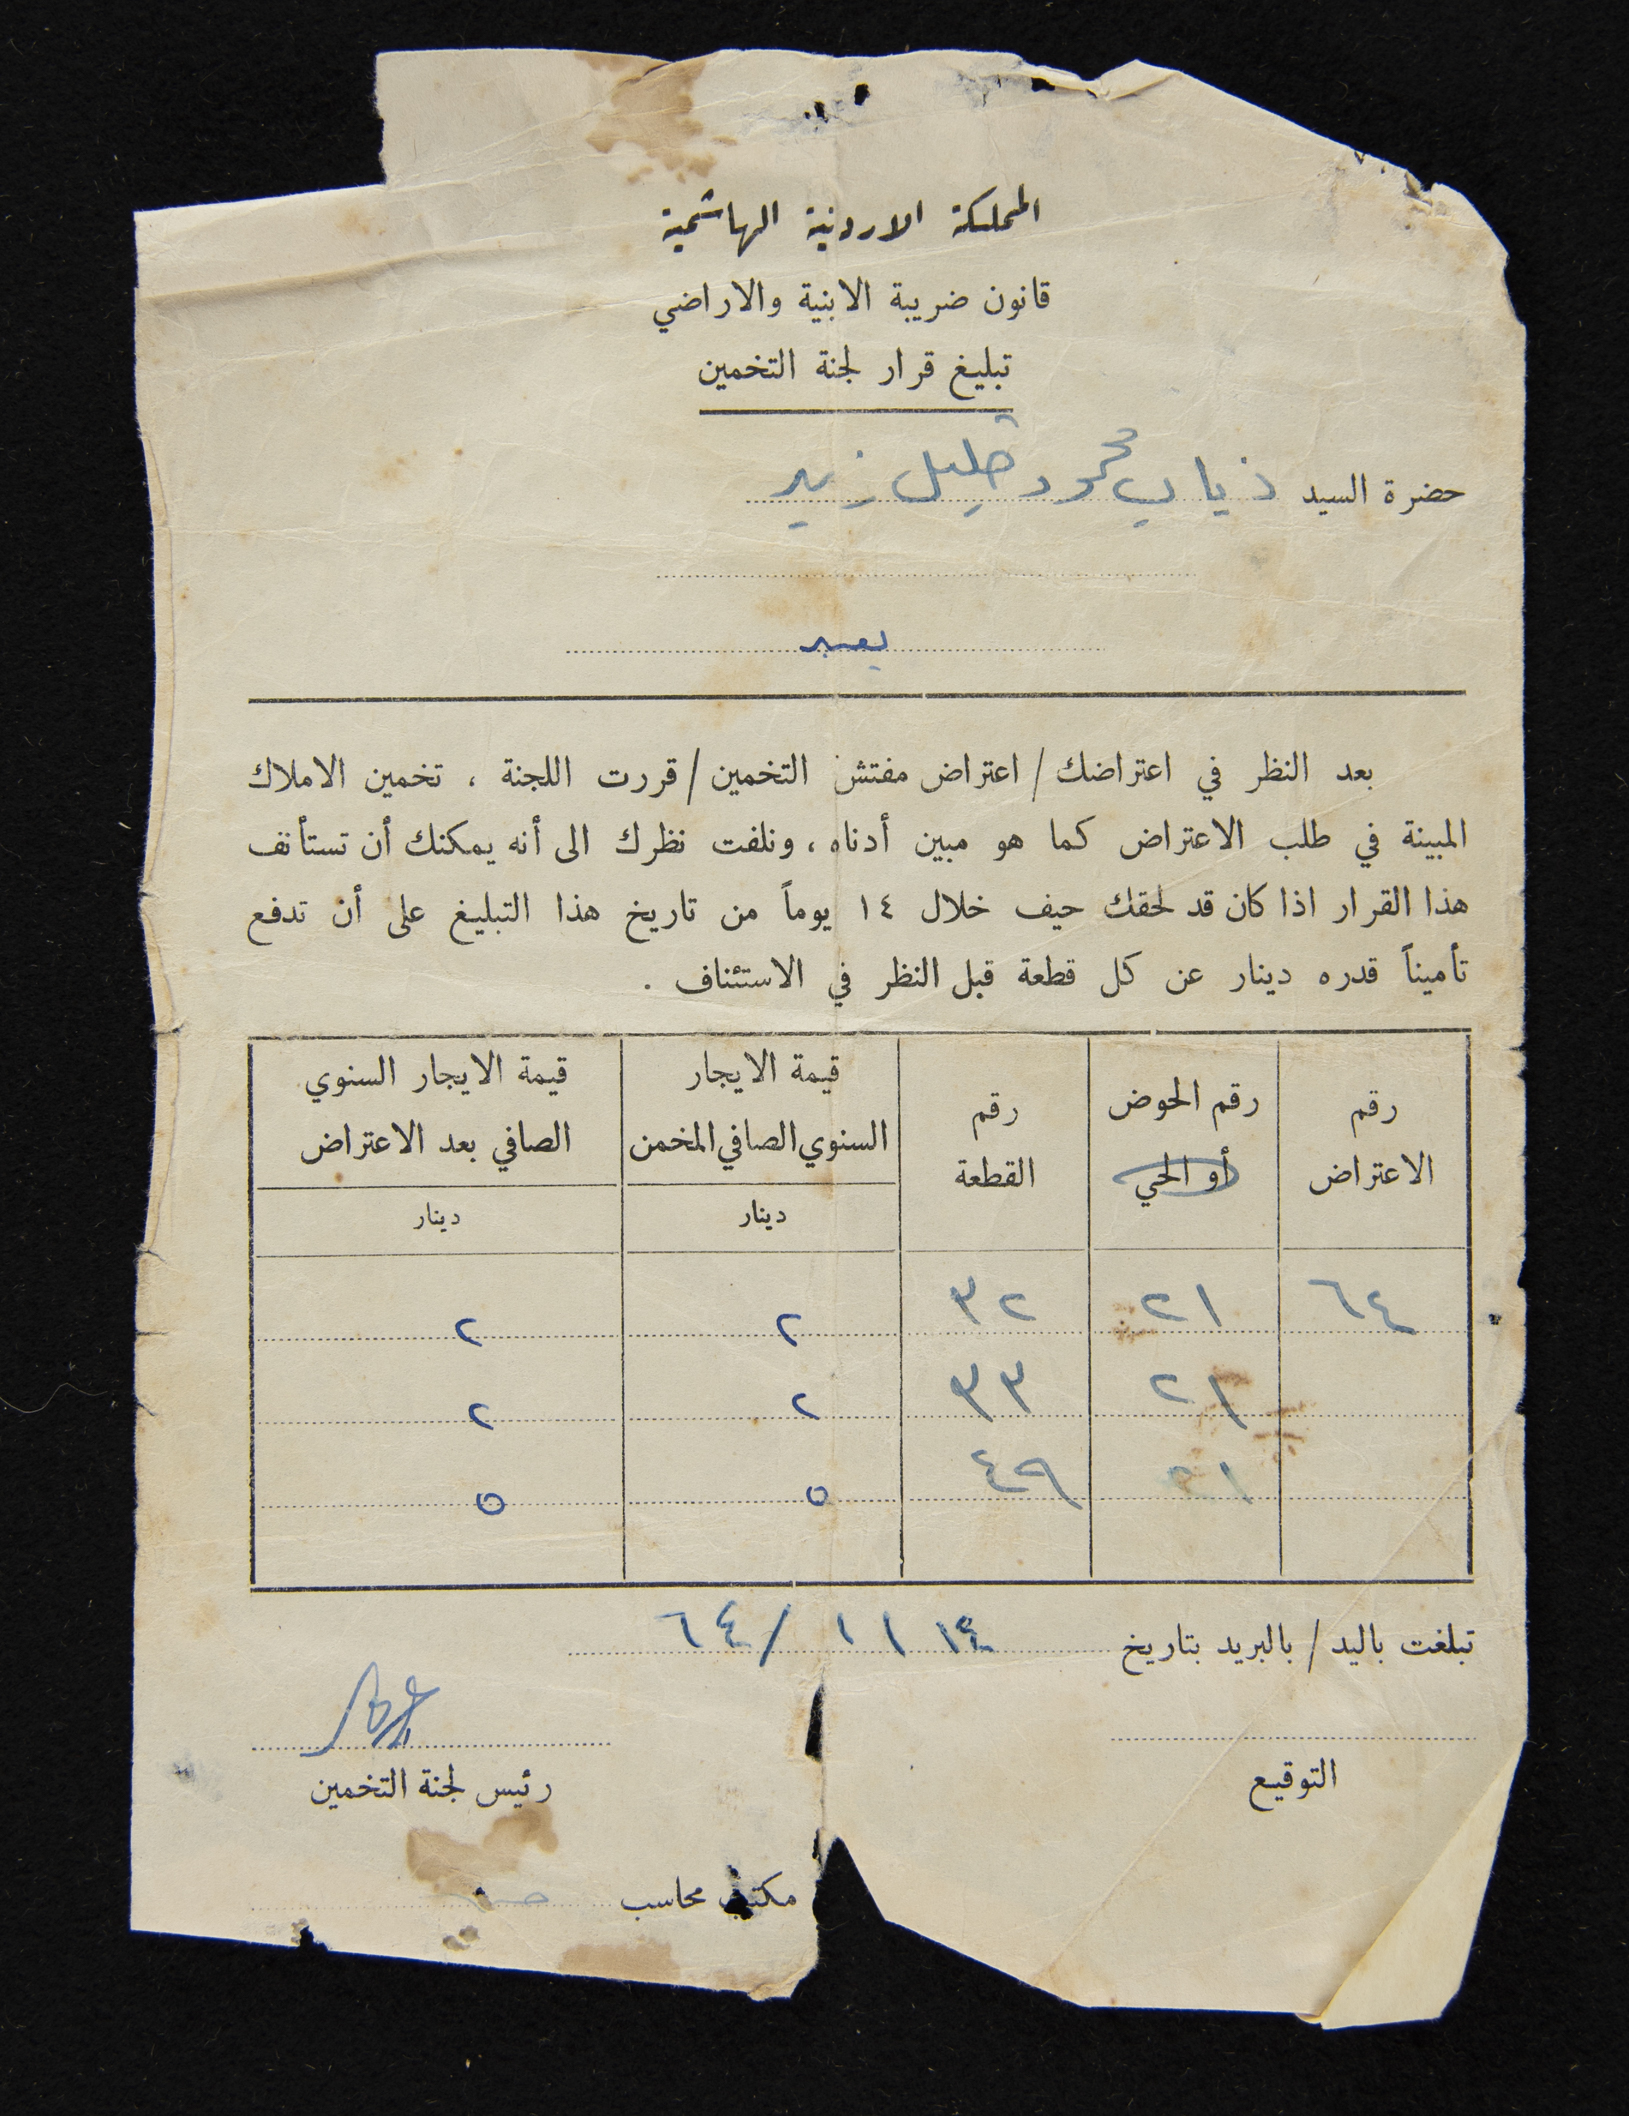 المملكة الاردنية الهاشمية
قانون ضريبة الابنية والاراضي
تبليغ قرار لجنة التخمين
حضرة السيد ذياب محمود خليل زيد
يعبد
بعد النظر في اعتراضك / اعتراض مفتش التخمين / قررت اللجنة ، تخمين الاملاك
المبينة في طلب الاعتراض كما هو مبين أدناه ، ونلفت نظرك الى أنه يمكنك أن تستأنف
هذا القرار اذا كان قد لحقك حيف خلال ١٤ يوماً من تاريخ هذا التبليغ على أن تدفع
تأميناً قدره دينار عن كل قطعة قبل النظر في الاستئناف .
رقم الاعتراض
رقم الحوض أو الحي
رقم القطعة
قيمة الايجار السنوي الصافي المخمن
قيمة الايجار السنوي الصافي بعد الاعتراض
دينار دينار
٦٤ ٢١ ٣٢ ٢ ٢
٢١ ٣٣ ٢ ٢
٢١ ٤٩ ٥ ٥
تبلغت باليد / بالبريد بتاريخ ١٤ ١١ / ٦٤
التوقيع
رئيس لجنة التخمين
مكتب محاسب